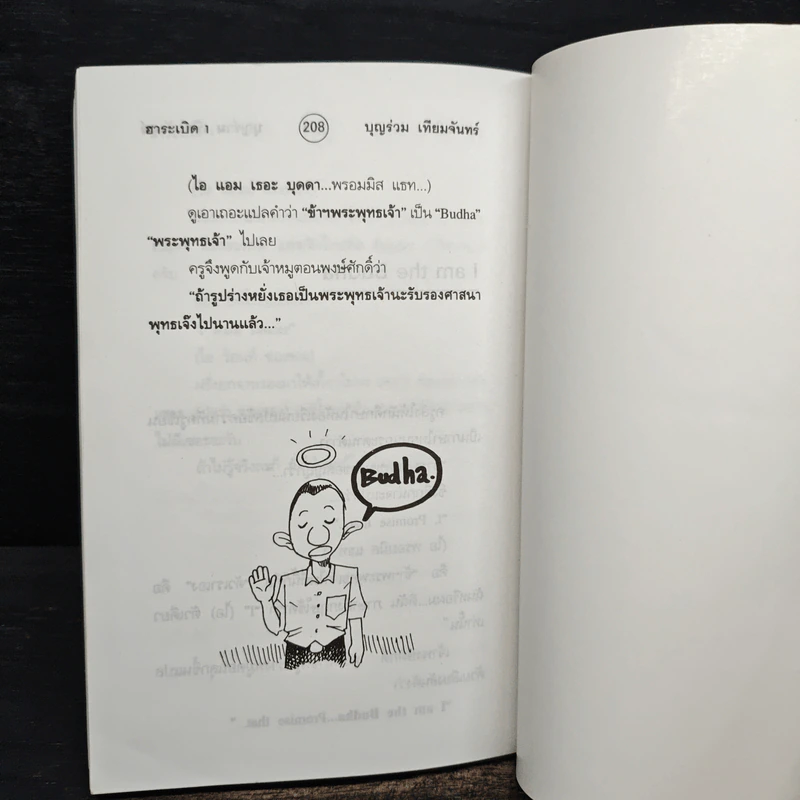 ฮาระเบิด 1 208 บุญร่วม เทียมจันทร์
(ไอ แอม เธอะ บุดดา...พรอมมิส แธท...)
ดูเอาเถอะแปลคำว่า “ข้าฯพระพุทธเจ้า” เป็น “Budha”
“พระพุทธเจ้า” ไปเลย
ครูจึงพูดกับเจ้าหมูตอนพงษ์ศักดิ์ว่า
“ถ้ารูปร่างหยั่งเธอเป็นพระพุทธเจ้านะรับรองศาสนา
พุทธเจ๊งไปนานแล้ว...”
Budha.